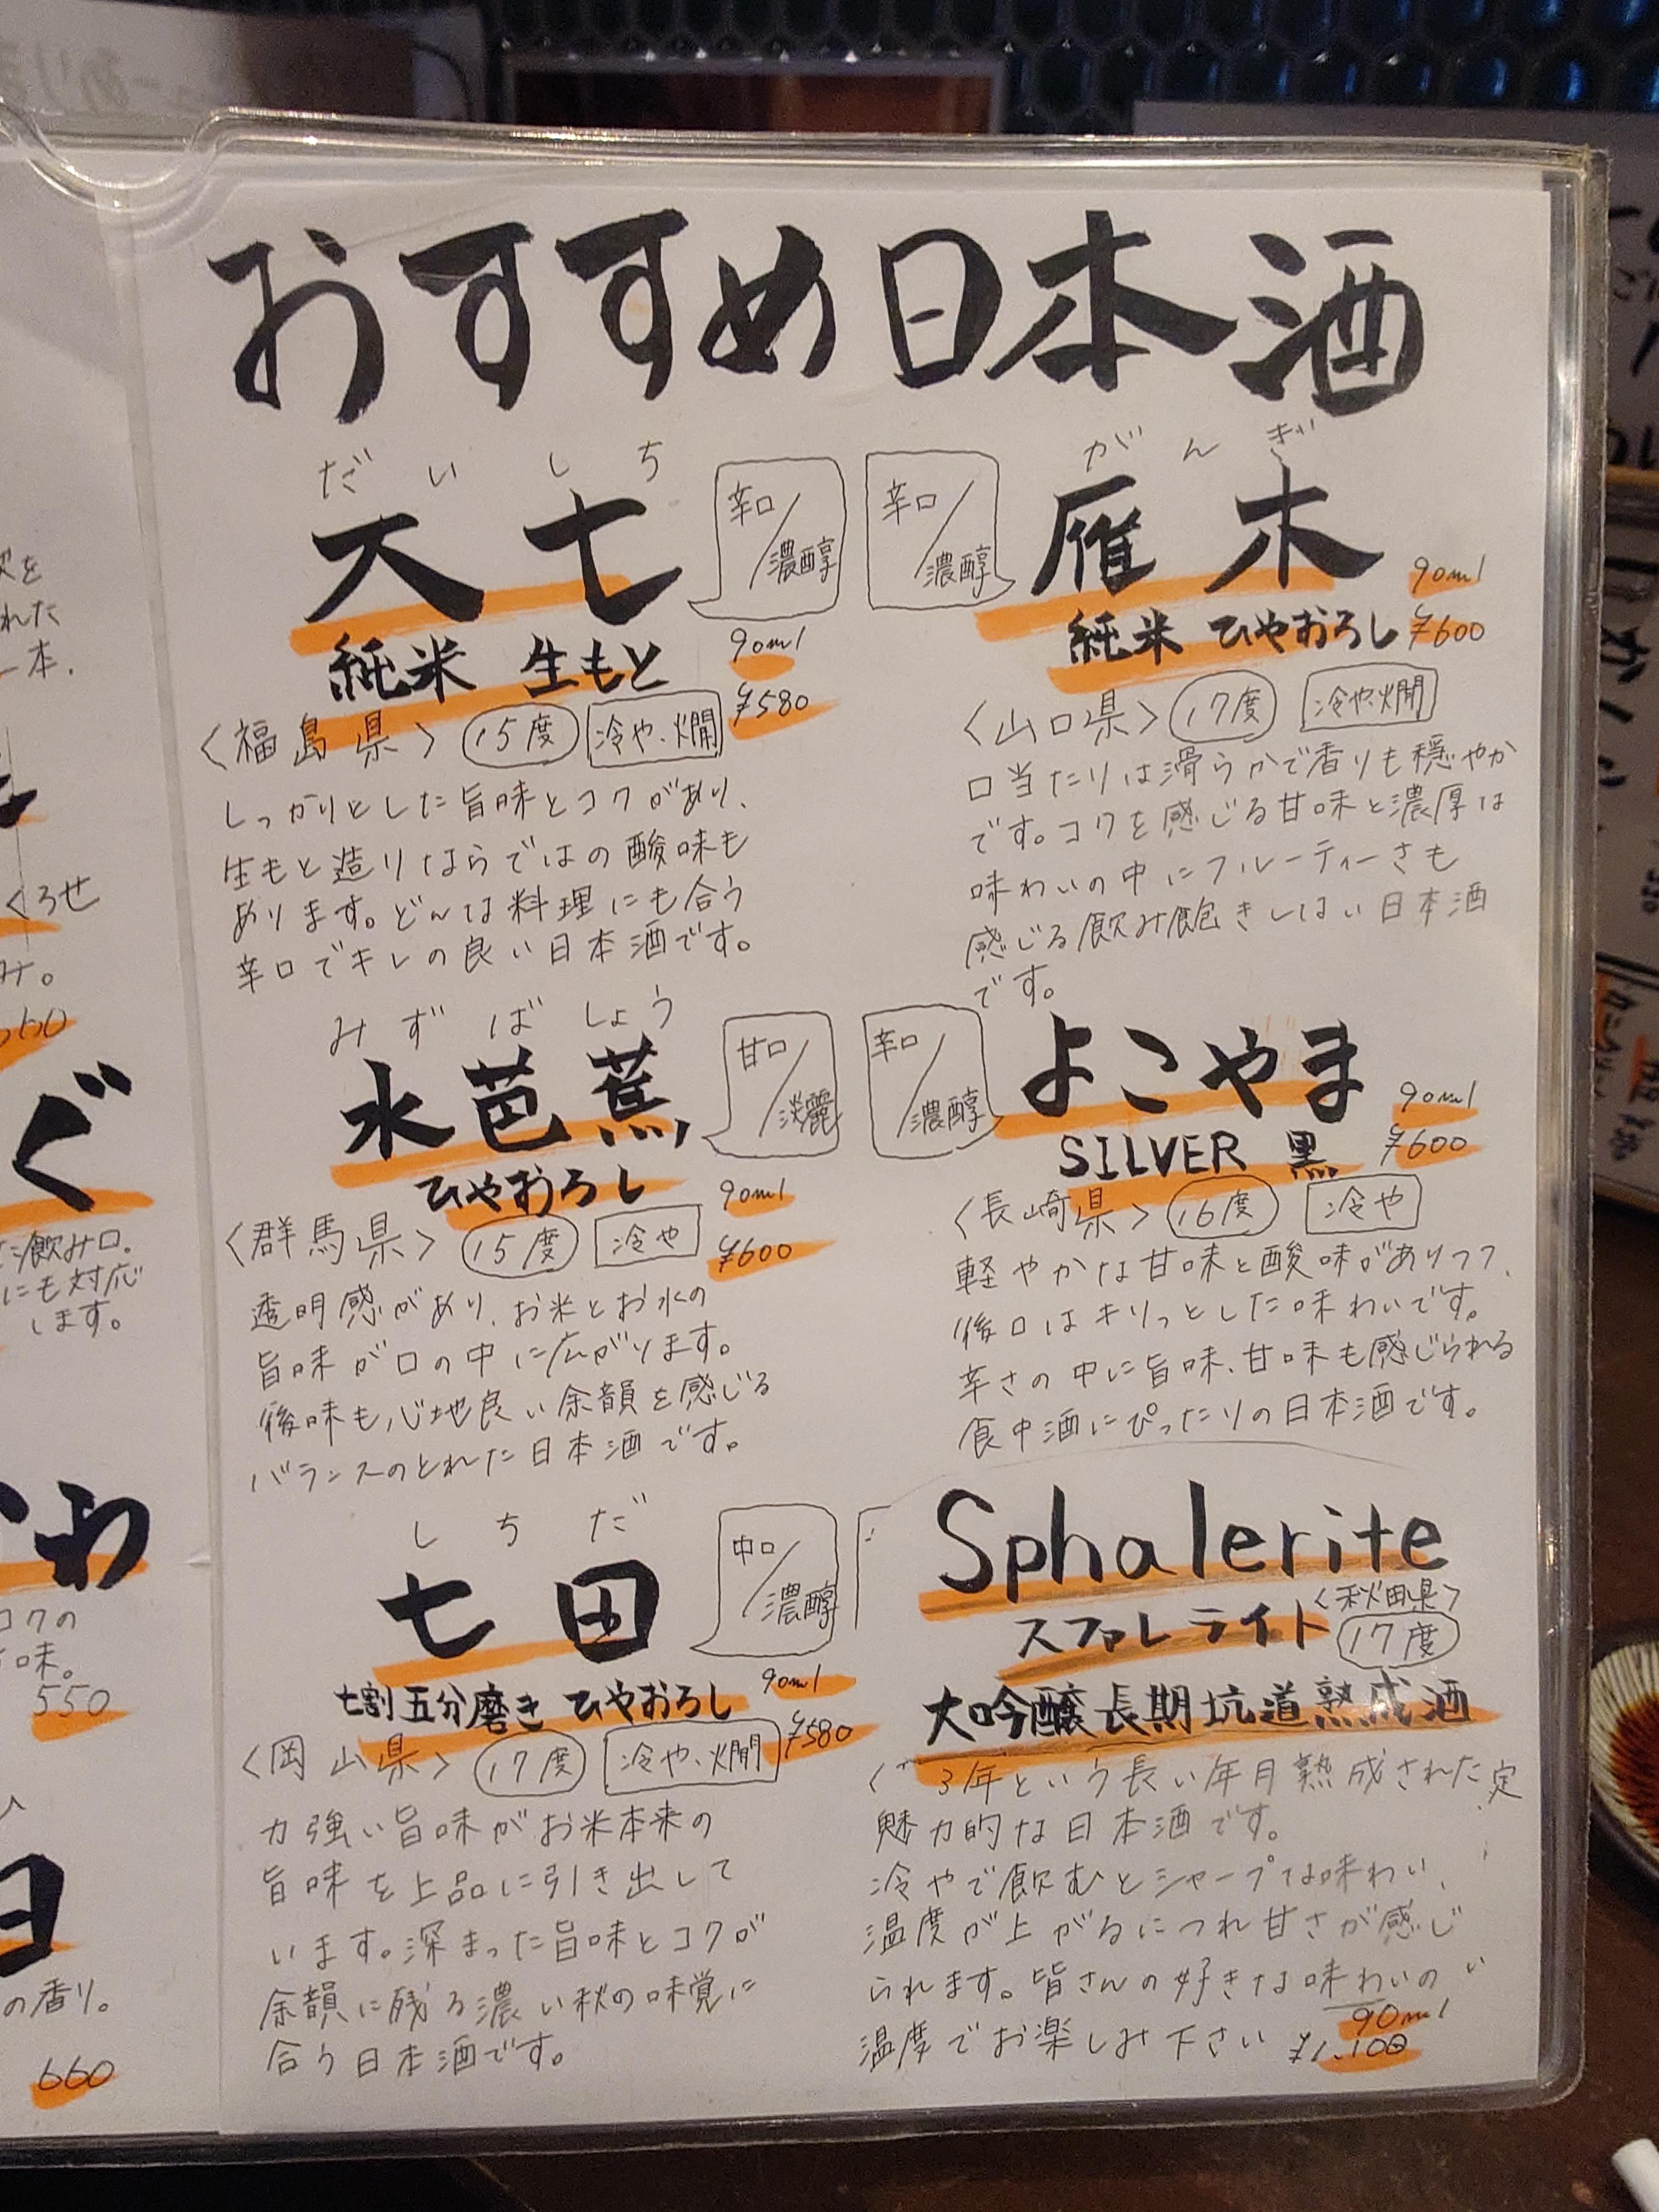 おすすめ日本酒
だいしち
大七
辛口/濃醇
純米 生もと
90ml
¥580
〈福島県〉 15度 冷や、燗
しっかりとした旨味とコクがあり、
生もと造りならではの酸味も
あります。どんな料理にも合う
辛口でキレの良い日本酒です。
がんぎ
雁木
辛口/濃醇
純米 ひやおろし
90ml
¥600
〈山口県〉 17度 冷や、燗
口当たりは滑らかで香りも穏やか
です。コクを感じる甘味と濃厚な
味わいの中にフルーティーさも
感じる飲み飽きしない日本酒
です。
みずばしょう
水芭蕉
甘口/淡麗
ひやおろし
90ml
¥600
〈群馬県〉 15度 冷や
透明感があり、お米とお水の
旨味が口の中に広がります。
後味も心地良い余韻を感じる
バランスのとれた日本酒です。
よこやま
辛口/濃醇
SILVER 黒
90ml
¥600
〈長崎県〉 16度 冷や
軽やかな甘味と酸味がありつつ、
後口はキリっとした味わいです。
辛さの中に旨味、甘味も感じられる
食中酒にぴったりの日本酒です。
しちだ
七田
中口/濃醇
七割五分磨き ひやおろし
90ml
¥580
〈岡山県〉 17度 冷や、燗
力強い旨味がお米本来の
旨味を上品に引き出して
います。深まった旨味とコクが
余韻に残る濃い秋の味覚に
合う日本酒です。
Sphalerite
スファレライト
〈秋田県〉
17度
大吟醸長期坑道熟成酒
3年という長い年月熟成された
魅力的な日本酒です。
冷やで飲むとシャープな味わい、
温度が上がるにつれ甘さが感じ
られます。皆さんの好きな味わいの
温度でお楽しみ下さい
90ml
¥1,100
れた
一本.
くろせ
み。
ぐ
飲み口。
にも対応
します。
かわ
コクの
味。
550
の香り。
660